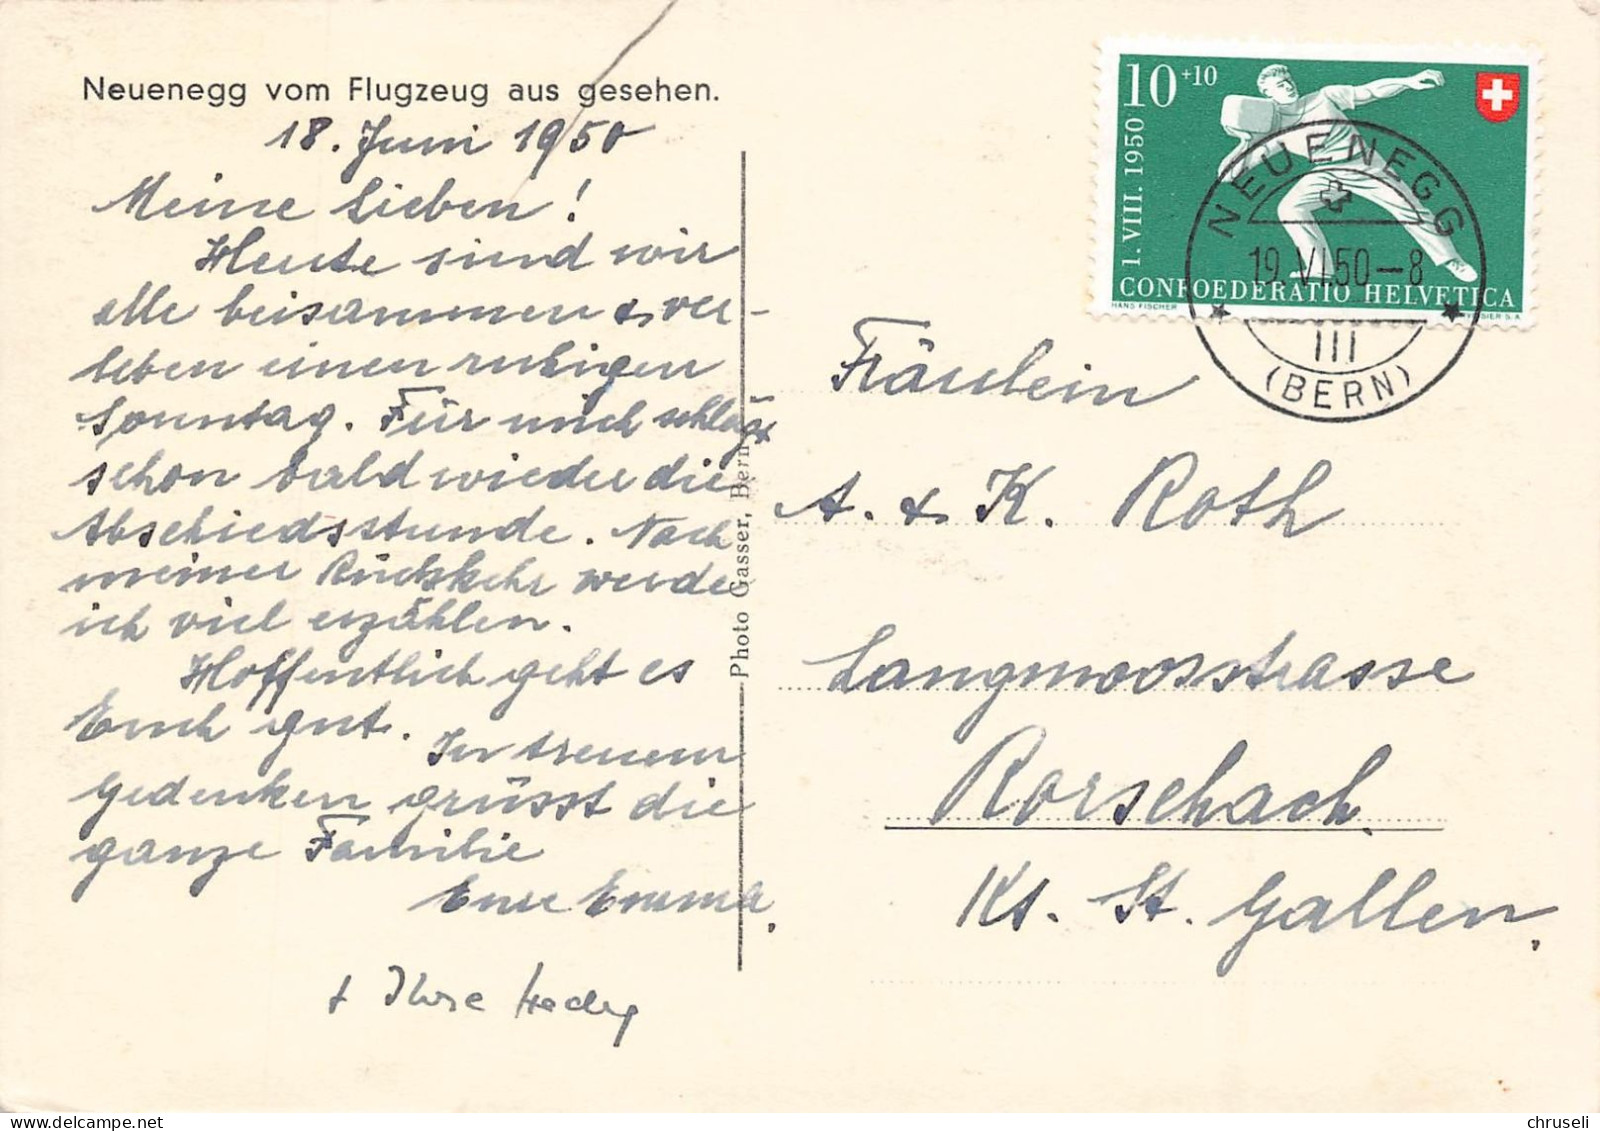 Neuenegg vom Flugzeug aus gesehen.
18. Juni 1950
Meine Lieben!
Heute sind wir
alle beisammen & ver-
leben einen ruhigen
Sonntag. Für mich schlägt
schon bald wieder die
Abschiedsstunde. Nach
meiner Rückkehr werde
ich viel erzählen.
Hoffentlich geht es
Euch gut. In treuem
Gedenken grüsst die
ganze Familie
Eure Emma,
+ Ihre Hedy
Photo Gasser, Bern
10 +10
1. VIII. 1950
CONFOEDERATIO HELVETICA
HANS FISCHER
NEUENEGG
19.VI.50-8
III
(BERN)
Fräulein
A. & K. Roth
Langmoosstrasse
Rorschach
Kt. St. Gallen,
chruseli